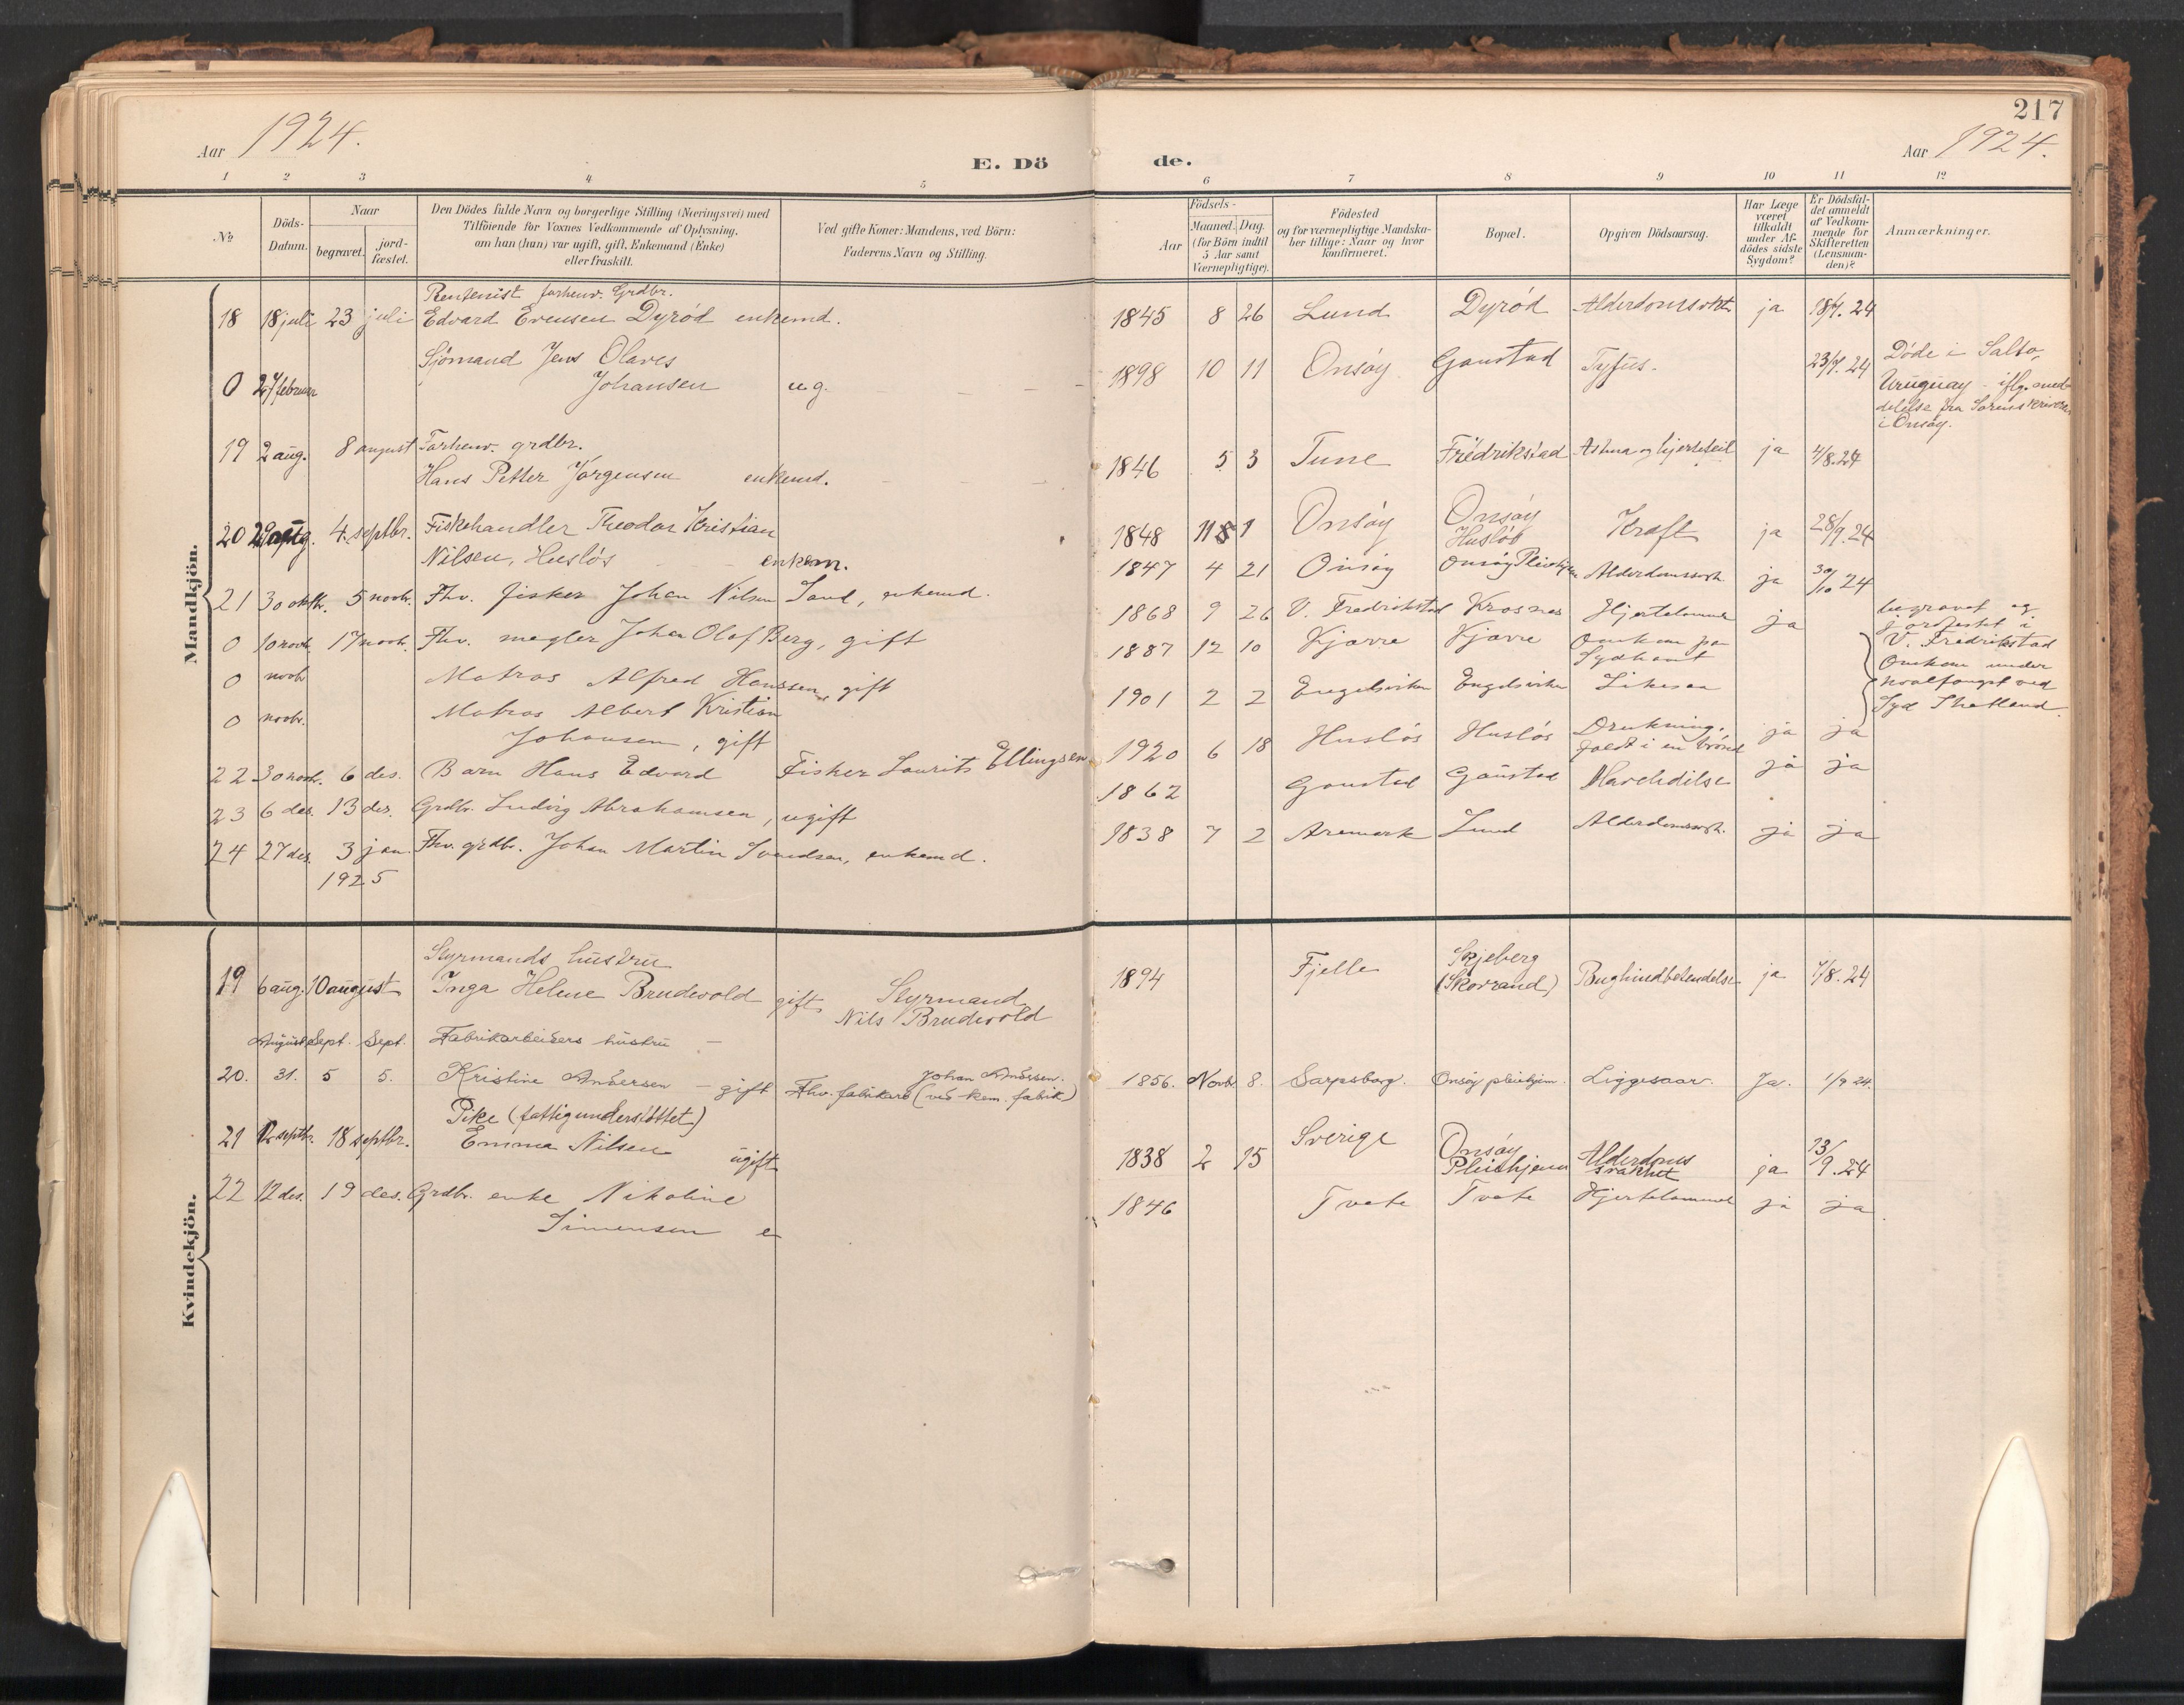 217
Aar 1924.
E. Dö de.
Aar 1924.
1 2 3 4 5 6 7 8 9 10 11 12
No
Döds-
Datum.
Naar
begravet.
jord-
fæstet.
Den Dödes fulde Navn og borgerlige Stilling (Næringsvei) med
Tilföiende for Voxnes Vedkommende af Oplysning,
om han (hun) var ugift, gift, Enkemand (Enke)
eller fraskilt.
Ved gifte Koner: Mandens, ved Börn:
Faderens Navn og Stilling.
Födsels-
Aar
Maaned. Dag.
(for Börn indtil
5 Aar samt
Værnepligtige).
Födested
og for værnepligtige Mandska-
ber tillige: Naar og hvor
konfirmeret.
Bopæl.
Opgiven Dödsaarsag.
Har Læge
været
tilkaldt
under Af-
dödes sidste
Sygdom?
Er Dödsfal-
det anmeldt
af Vedkom-
mende for
Skifteretten
(Lensman-
den)?
Anmærkninger.
Mandkjön.
Rentenist forhenv. Grdbr.
18 18 juli 23 juli Edvard Evensen Dyröd enkemd. 1845 8 26 Lund Dyröd Alderdomssvakt ja 18/7. 24
Sjömand Jens Olaves
0 27 februar Johansen u.g. 1898 10 11 Onsöy Gaustad Tyfus. 23/7. 24 Döde i Salto,
Uruguay - iflg. med-
delelse fra Sorenskriveren
i Onsöy.
19 2 aug. 8 august Forhenv. grdbr.
Hans Petter Jörgensen enkemd. 1846 5 3 Tune Fredrikstad Astma og hjertefeil ja 4/8.24
20 29 aug. 4. septbr. Fiskehandler Theodor Kristian
Nilsen, Huslös enkem. 1848 11 1 Onsöy Onsöy
Huslös Kræft ja 28/9.24
21 30 oktbr. 5 novbr. Fhv. fisker Johan Nilsen Sand, enkemd. 1847 4 21 Onsöy Onsöy Pleiehjem Alderdomssvak ja 30/10 24
0 10 novb. 17 novb. Fhv. megler Johan Olaf Berg, gift 1868 9 26 V. Fredrikstad Krosnes Hjertelammelse ja begravet og
jordfestet i
V. Fredrikstad
0 novb. Matros Alfred Hanssen, gift 1887 12 10 Kjærre Kjærre Omkom paa
Sydhavet
Omkom under
hvalfangst ved
Syd Shetland.
0 novbr. Matros Albert Kristian
Johansen, gift 1901 2 2 Engelsviken Engelsviken Likesaa
22 30 novb. 6 des. Barn Hans Edvard Fisker Laurits Ellingsen 1920 6 18 Huslös Huslös Drukning,
faldt i en brönd ja ja
23 6 des. 13 des. Grdbr. Ludvig Abrahamsen, ugift 1862 Gaustad Gaustad ja ja
24 27 des. 3 jan. Fhv. grdbr. Johan Martin Svendsen, enkemd. 1838 7 2 Aremark Lund Alderdomssvak. ja ja
1925
Kvindekjön.
Styrmands hustru
19 6 aug. 10 august Inga Helene Brudevold gift Styrmand
Nils Brudevold 1894 Fjelle Skjeberg
(Skovrand) Bughindbetendelse ja 7/8. 24
August Sept. Sept. Fabrikarbeiders hustru
20. 31. 5 5. Kristine Andersen - gift Johan Andersen.
Fhv. fabrikarb (ved kem. fabrik) 1856. Novb. 8. Sarpsborg. Onsöy pleiehjem. Liggesaar. Ja. 1/9 24.
Pike (fattigunderstöttet)
21 12 septbr. 18 septbr. Emma Nilsen ugift 1838 2 15 Sverige Onsöy
Pleiehjem Alderdoms
svakhet ja 13/9.24
22 12 des. 19 des. Grdbr. enke Nikoline
Simensen e 1846 Tvete Tvete Hjertelammelse ja ja